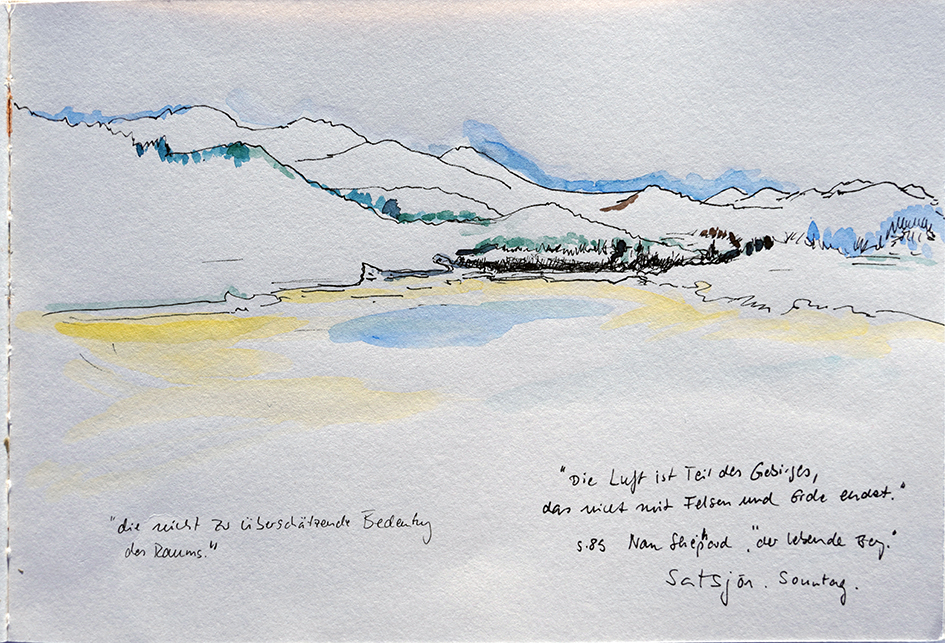 "die nicht zu überschätzende Bedeutung
des Raums."
"Die Luft ist Teil des Gebirges,
das nicht mit Felsen und Erde endet."
S.85 Nan Shepard, "der lebende Berg."
Satsjön. Sonntag.